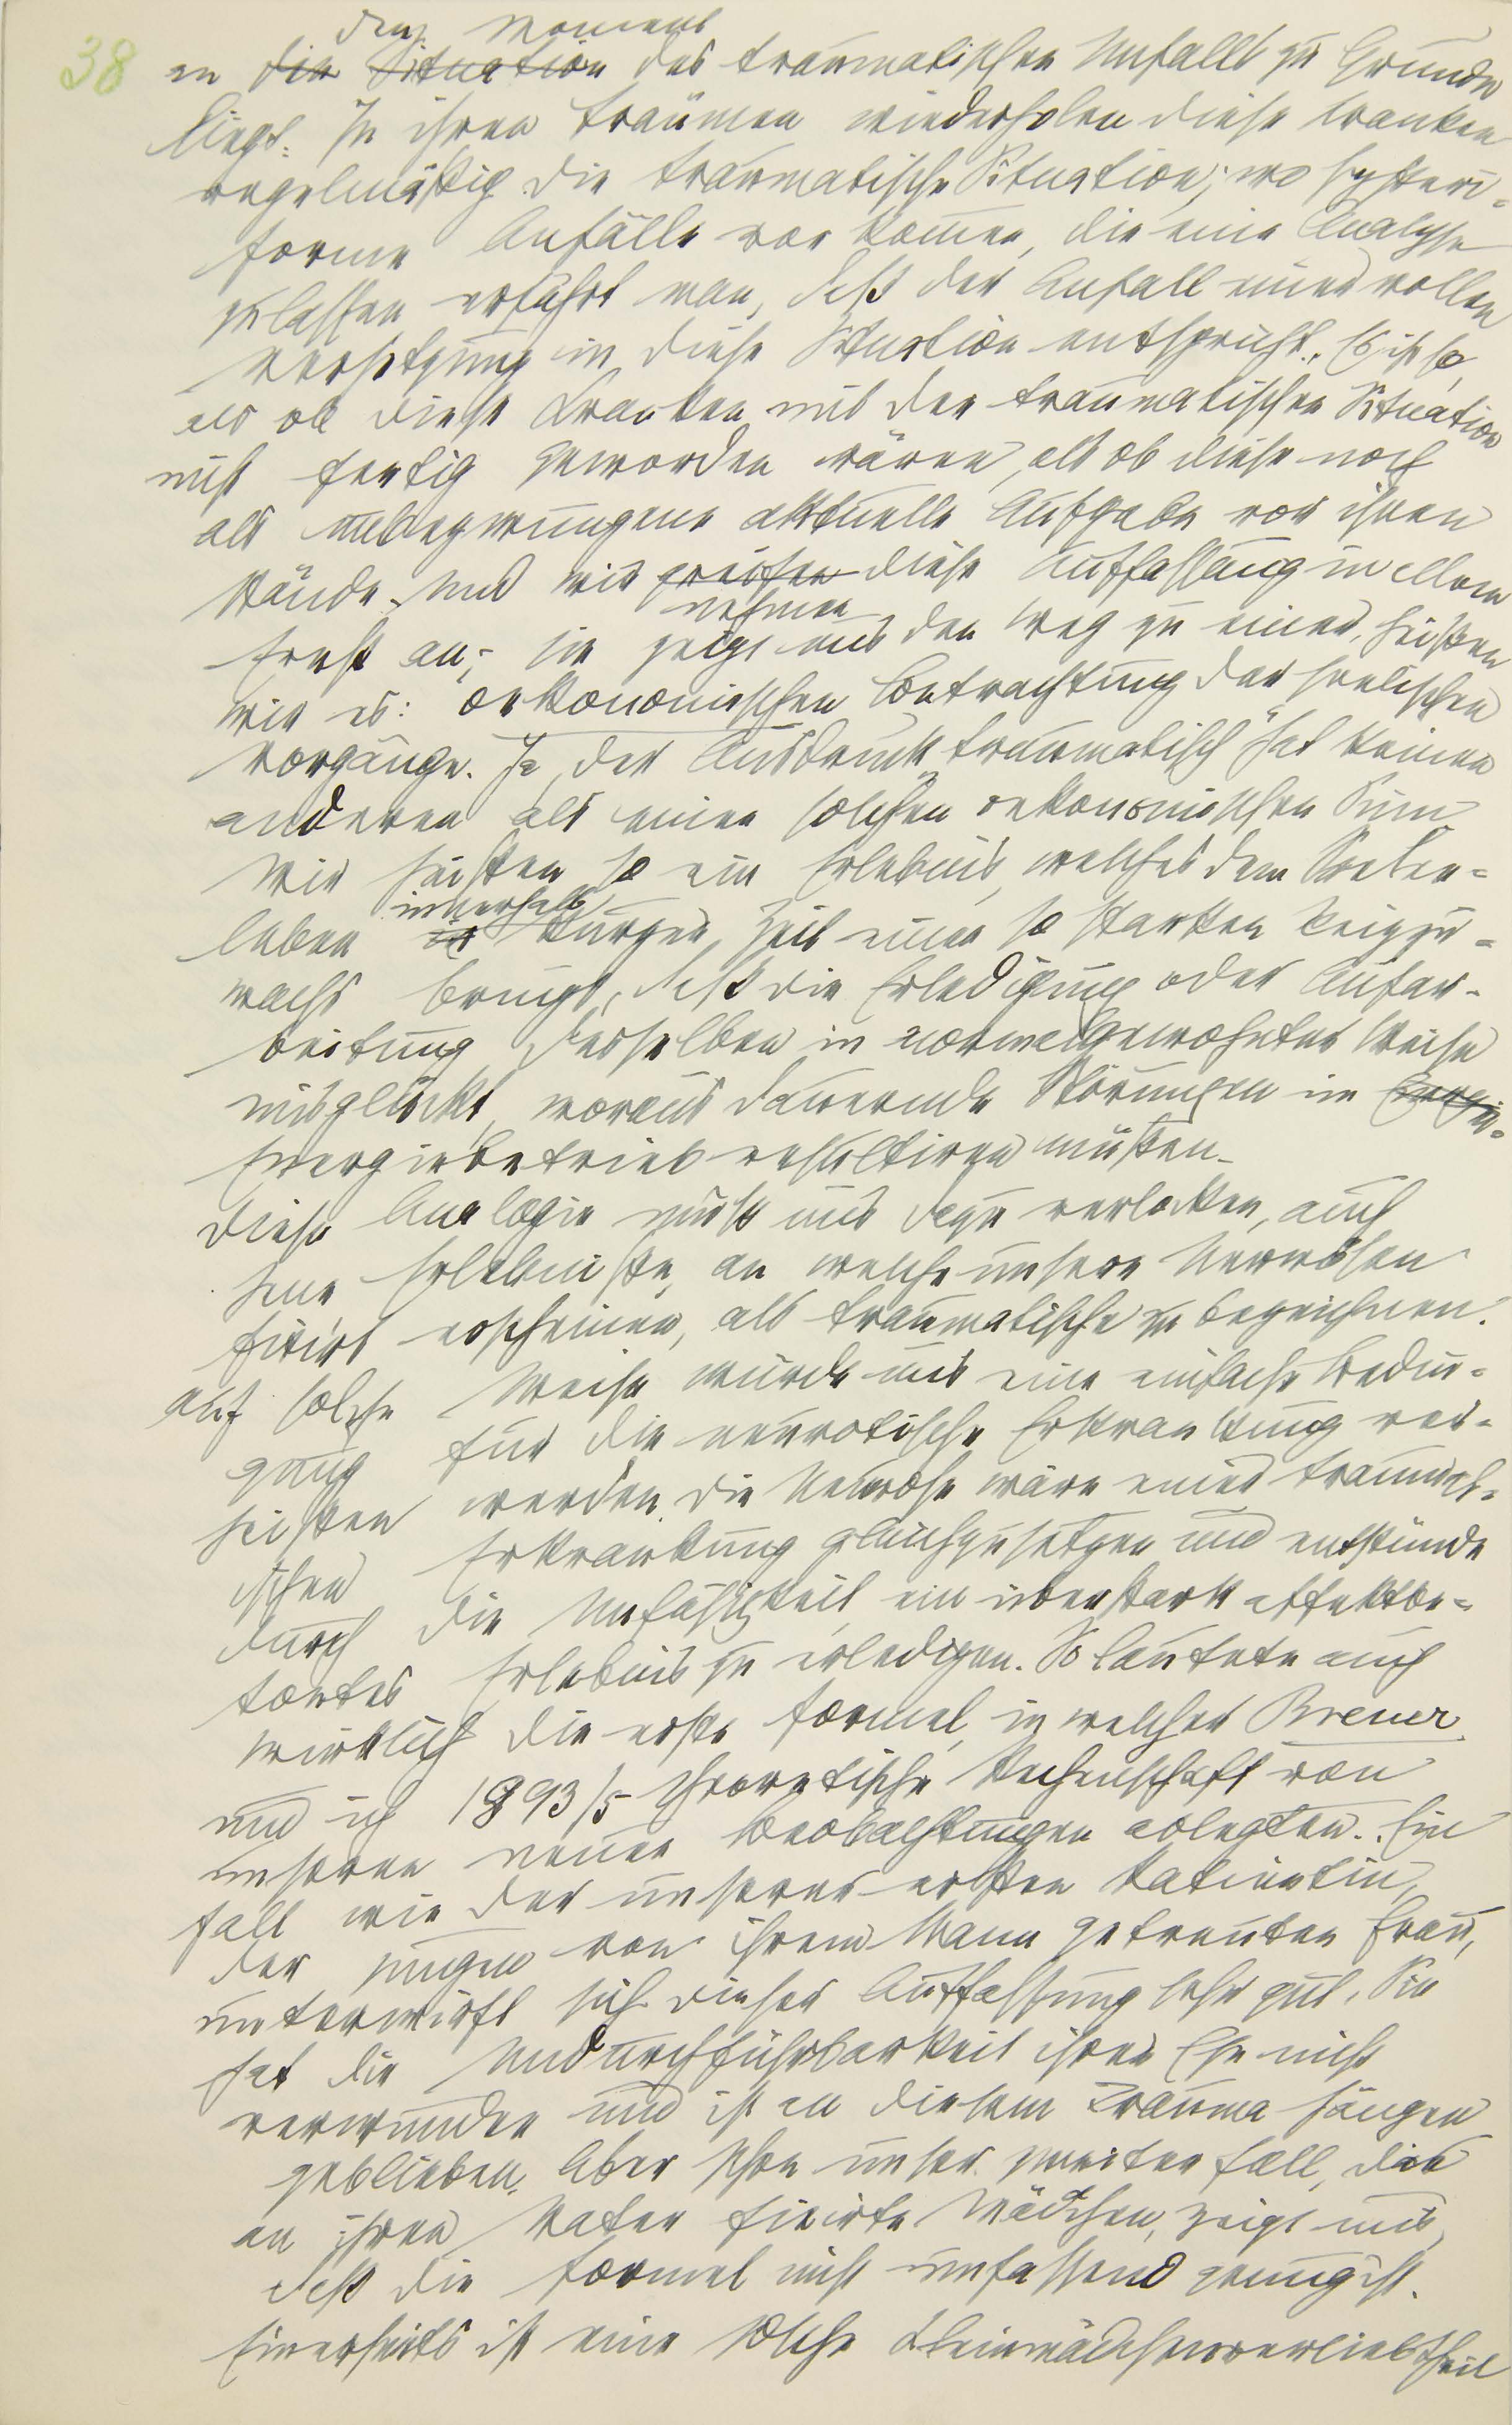 38
den Moment
an die Situation des traumatischen Unfalls zu Grunde
liegt. In ihren Träumen wiederholen diese Kranken
regelmäßig die traumatische Situation; wo hysteri-
forme Anfälle vorkommen, die eine Analyse
zulassen erfährt man, daß der Anfall einer vollen
Versetzung in diese Situation entspricht. Es ist so,
als ob diese Kranken mit der traumatischen Situation
nicht fertig geworden wären, als ob diese noch
als unbezwungene aktuelle Aufgabe vor ihnen
stände. Und wir greifen diese Auffassung in allem
nehmen
Ernst an; sie zeigt uns den Weg zu einer, heißen
wir es: oekonomischen Betrachtung der seelischen
Vorgänge. Ja, der Ausdruck „traumatisch“ hat keinen
anderen als einen solchen oekonomischen Sinn
Wir heißen so ein Erlebnis, welches dem Seelen-
innerhalb
leben in kurzer Zeit einen so starken Reizzu-
wachs bringt, daß die Erledigung oder Aufar-
beitung desselben in normalgewohnter Weise
misglückt, woraus dauernde Störungen im Energie-
Energiebetrieb resultiren müßen.
Diese Analogie muß uns dazu verlocken, auch
jene Erlebniße, an welche unsere Nervösen
fixirt erscheinen, als traumatische zu bezeichnen.
Auf solche Weise würde uns eine einfache Bedin-
gung für die neurotische Erkrankung ver-
heißen werden. Die Neurose wäre einer traumat-
ischen Erkrankung gleichzusetzen und entstünde
durch die Unfähigkeit, ein überstark affektbe-
tontes Erlebnis zu erledigen. So lautete auch
wirklich die erste Formel, in welcher Breuer
und ich 1893/5 theoretische Rechenschaft von
unseren neuen Beobachtungen ablegten. Ein
Fall wie der unserer ersten Patientin,
der jungen von ihrem Mann getrennten Frau,
unterwirft sich dieser Auffassung sehr gut. Sie
hat die Undurchführbarkeit ihrer Ehe nicht
verwunden und ist an diesem Trauma hängen
geblieben. Aber schon unser zweiter Fall, das
an ihren Vater fixirte Mädchen, zeigt uns,
daß die Formel nicht umfassend genug ist.
Einerseits ist eine solche Kleinmädchenverliebtheit